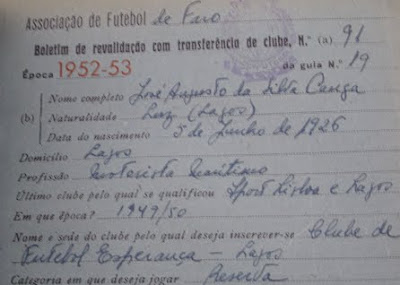 Associação de Futebol de Faro
Boletim de revalidação com transferência de clube, N.º (a) 91
Época 1952-53 da guia N.º 19
Nome completo José Augusto da Silva Canga
(b) Naturalidade Luz (Lagos)
Data do nascimento 5 de Junho de 1926
Domicílio Lagos
Profissão Motorista Maritimo
Último clube pelo qual se qualificou Sport Lisboa e Lagos
Em que época? 1949/50
Nome e séde do clube pelo qual deseja inscrever-se Clube de
Futebol Esperança — Lagos
Categoria em que deseja jogar Reserva